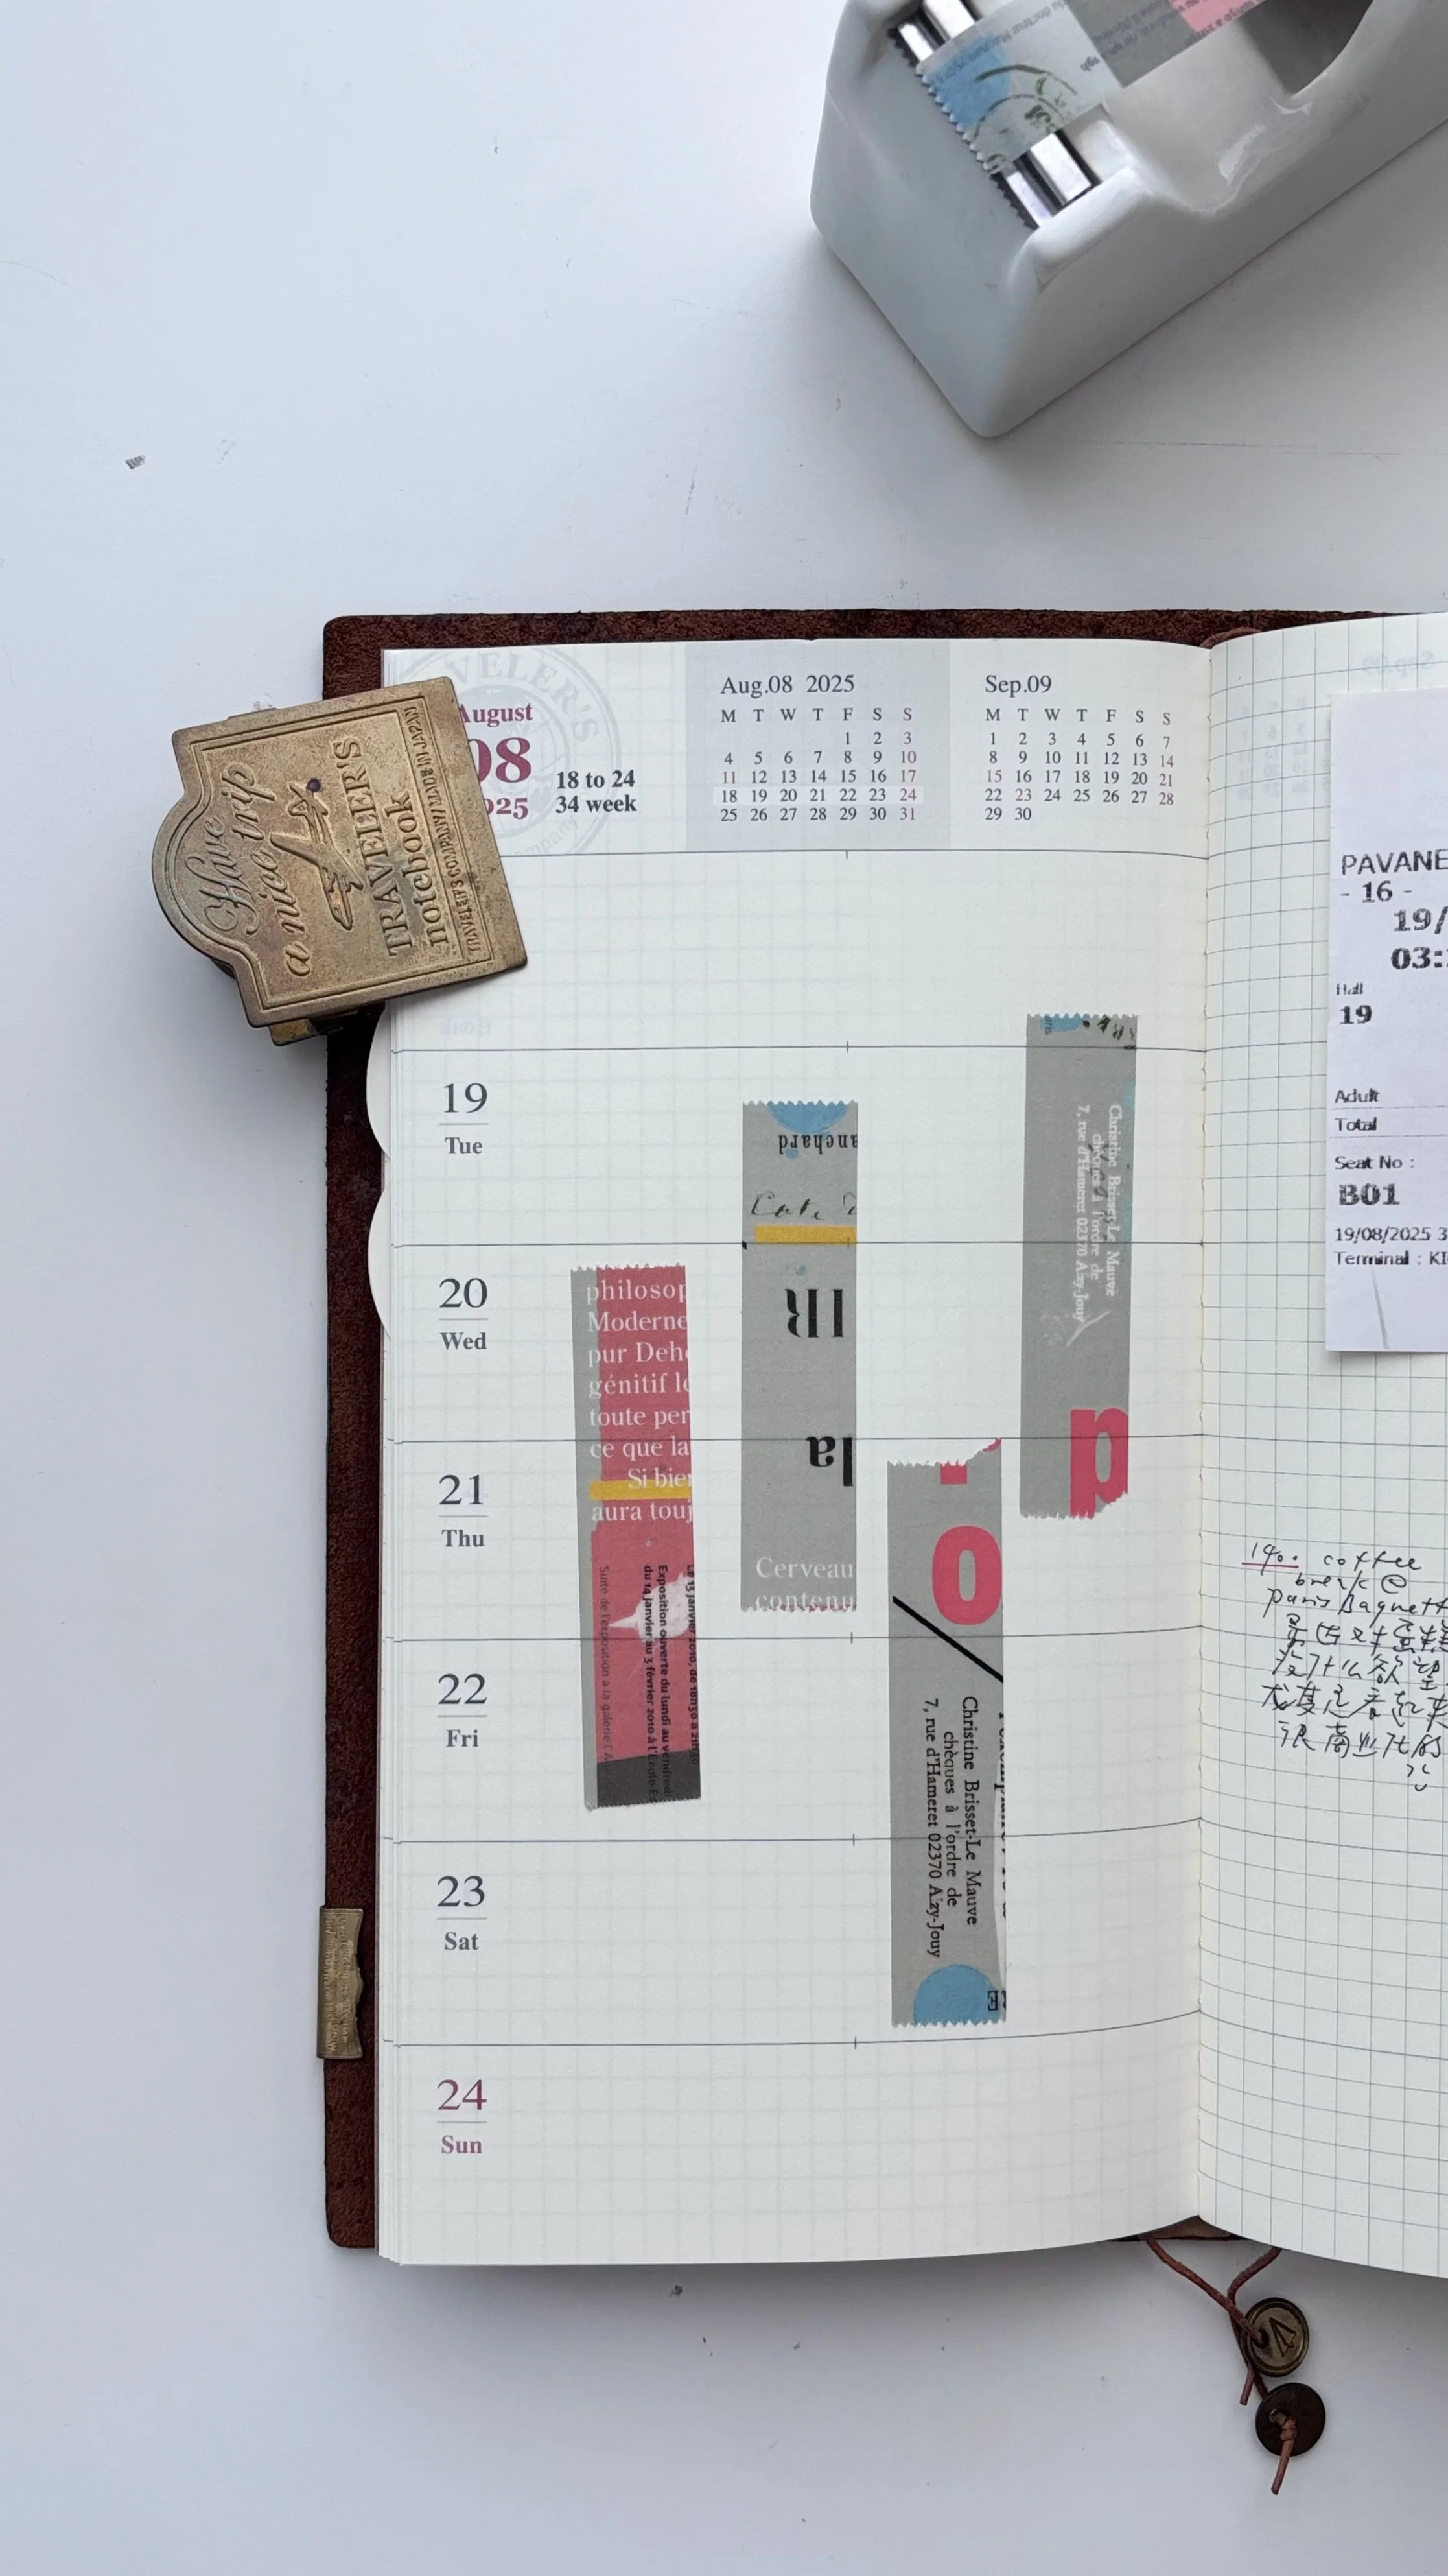 Have
a nice trip
TRAVELER'S
notebook
TRAVELER'S COMPANY MADE IN JAPAN
VELER'S
August
08
2025
18 to 24
34 week
Aug.08 2025
M T W T F S S
1 2 3
4 5 6 7 8 9 10
11 12 13 14 15 16 17
18 19 20 21 22 23 24
25 26 27 28 29 30 31
Sep.09
M T W T F S S
1 2 3 4 5 6 7
8 9 10 11 12 13 14
15 16 17 18 19 20 21
22 23 24 25 26 27 28
29 30
19
Tue
20
Wed
21
Thu
22
Fri
23
Sat
24
Sun
philosop
Moderne
pur Deh
génitif l
toute per
ce que la
Si bie
aura touj
Le 13 janvier 2010, de 18h30 à 21h30
Exposition ouverte du lundi au vendredi
du 14 janvier au 3 février 2010 à l'École
Suite de l'exposition à la galerie
anchard
IR
la
Cerveau
contenu
o
Christine Brisset-Le Mauve
chèques à l'ordre de
7, rue d'Hameret 02370 Aizy-Jouy
Christine Brisset-Le Mauve
chèques à l'ordre de
7, rue d'Hameret 02370 Aizy-Jouy
PAVANE
- 16 -
19/
03:
Hall
19
Adult
Total
Seat No :
B01
19/08/2025 3
Terminal : KI
140. coffee
break @
paris Baguett
没什么欲望
尤其是看起来
很商业化的